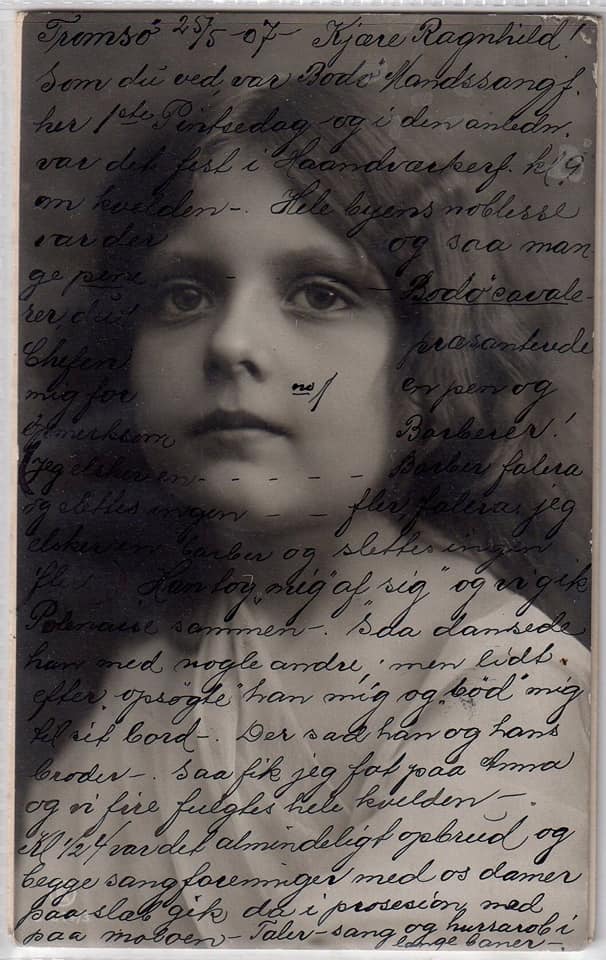 Tromsö 25/5 - 07 - Kjære Ragnhild!
Som du ved, var Bodö Mandssangf.
her 1ste Pintsedag og i den anledn.
var det fest i Haandværkerf. kl 9
om kvelden -. Hele byens noblesse
var der og saa man-
ge pene - - Bodöcavale-
rer, du! præsanterede
Chefen
mig for en pen og
opmerksom Barberer!
(Jeg elsker en - - - - - Barber falera
og slettes ingen - - fler, falera, jeg
elsker en barber og slettes ingen
fler) Han tog "mig" af sig" og vi gik
Polenaise sammen -. Saa dansede
han med nogle andre, men lidt
efter "opsøgte" han mig og "bød" mig
til sit bord -. Der sad han og hans
broder -. Saa fik jeg fat paa Anna
og vi fire fulgtes hele kvelden -.
Kl 1/2 4 var det almindeligt opbrud og
begge sangforeninger med os damer
paa slæb gik da i prosesión ned
paa moloen - Taler - sang og hurrarob i
lange baner -.
no 1